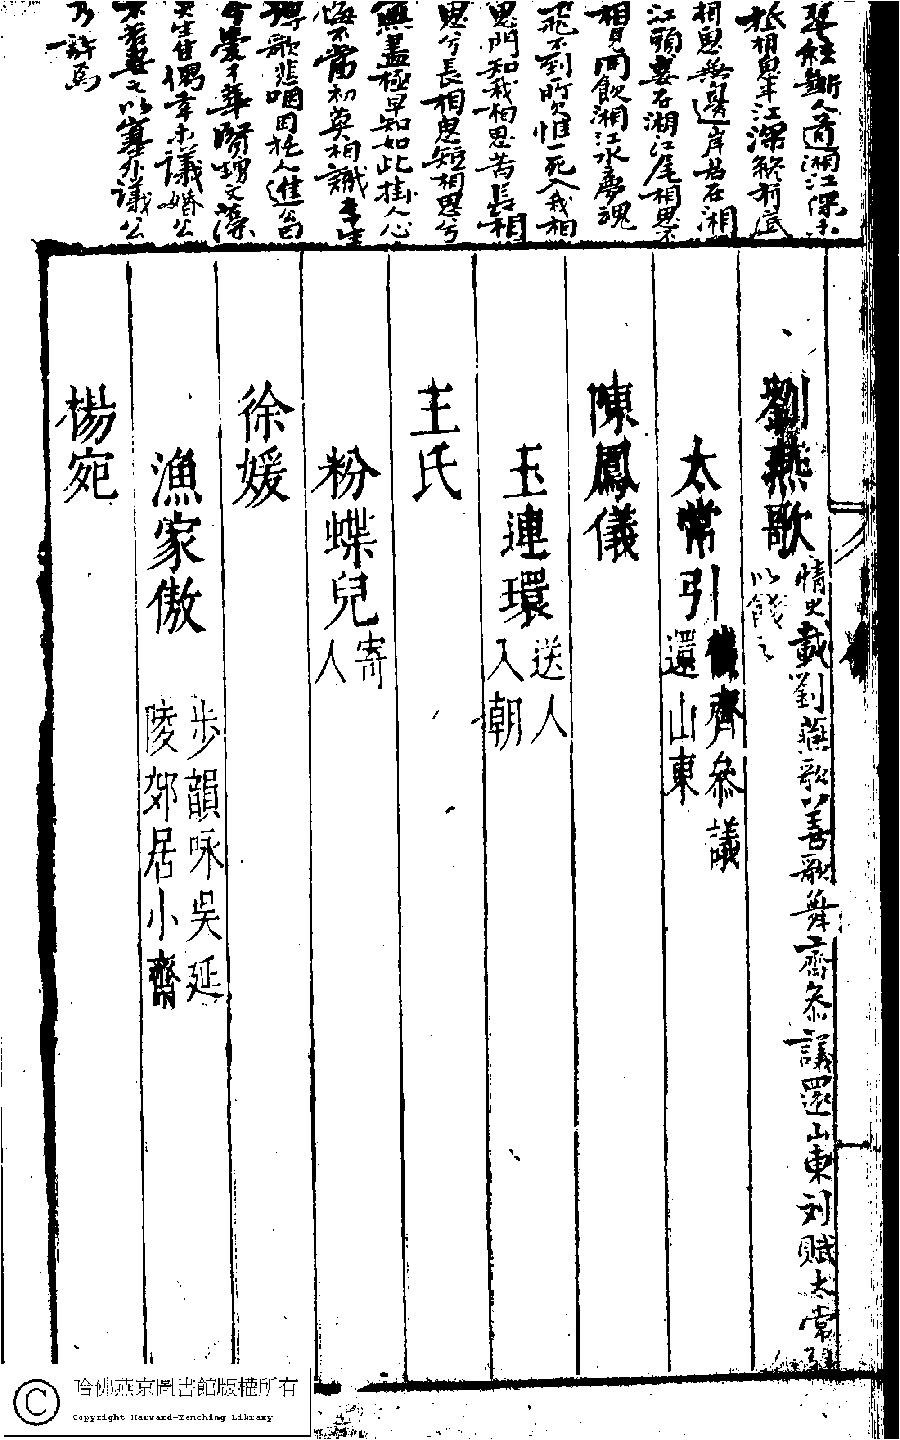 琴絃斷人適湘江深未
抵相思半江深終有底
相思無邊岸君在湘
江頭妾在湘江尾相思不
相見同飲湘江水夢魂
飛不到所欠惟一死入我相
思門知我相思苦長相
思兮長相思短相思兮
無盡極早知如此掛人心
悔不當初莫相識
歌悲咽因托人進公曰
乃許焉
劉燕歌
情史載劉燕歌善歌舞齊參議還山東刘賦太常引
以餞之
太常引 齊參議
還山東
陳鳳儀
玉連環 送人
入朝
王氏
粉蝶兒 寄
人
徐媛
漁家傲 步韻咏吳延
陵郊居小齋
楊宛
哈佛燕京圖書館版權所有
Copyright Harvard-Yenching Library